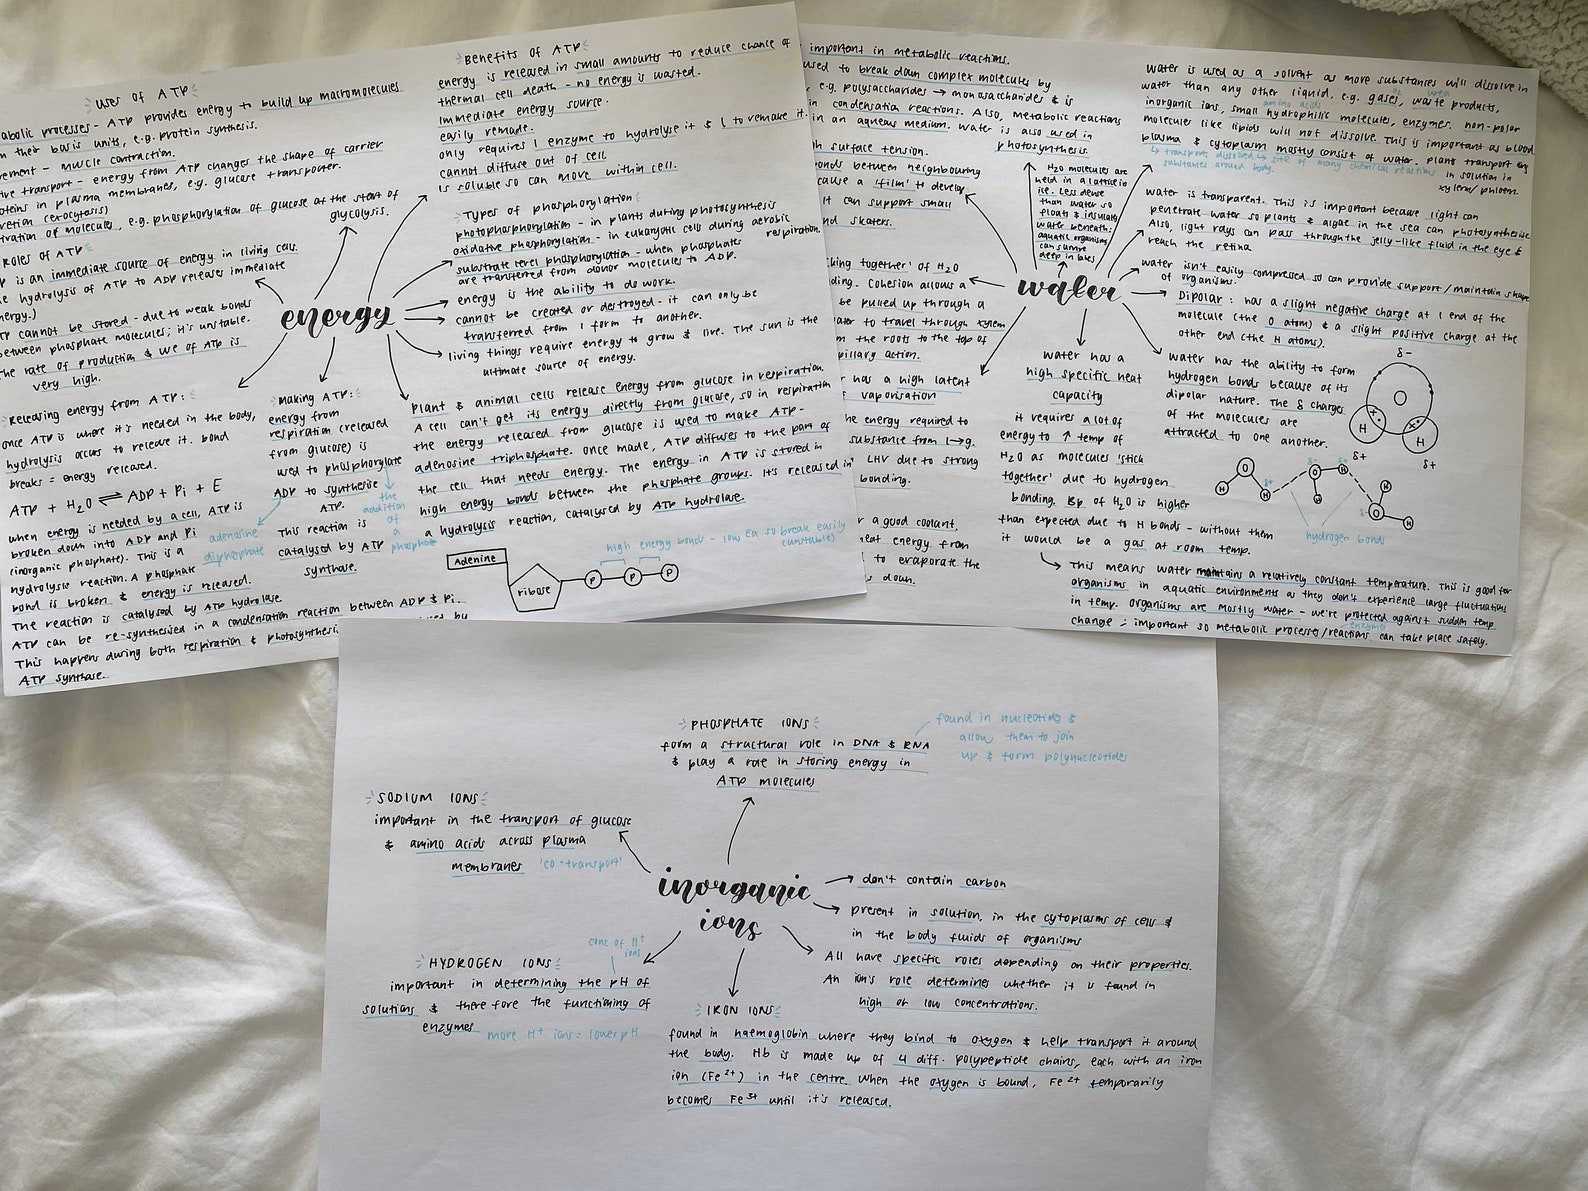 Uses of ATP
abolic processes - ATP provides energy to build up macromolecules
m their basis units, e.g. protein synthesis.
ement - muscle contraction.
ive transport - energy from ATP changes the shape of carrier
oteins in plasma membranes, e.g. glucose transporter.
retion (exocytosis)
ivation of molecules, e.g. phosphorylation of glucose at the start of
glycolysis.
Roles of ATP
P is an immediate source of energy in living cells.
he hydrolysis of ATP to ADP releases immediate
energy.)
TP cannot be stored - due to weak bonds
between phosphate molecules; it's unstable.
the rate of production & use of ATP is
very high.
Releasing energy from ATP:
once ATP is where it's needed in the body,
hydrolysis occurs to release it. bond
breaks = energy released.
ATP + H2O ⇌ ADP + Pi + E
when energy is needed by a cell, ATP is
broken down into ADP and Pi
(inorganic phosphate). This is a
hydrolysis reaction. A phosphate
bond is broken & energy is released.
The reaction is catalysed by ATP hydrolase.
ATP can be re-synthesised in a condensation reaction between ADP & Pi.
This happens during both respiration & photosynthesis
ATP synthase.
adenosine
diphosphate
Making ATP:
energy from
respiration (released
from glucose) is
used to phosphorylate
ADP to synthesise
ATP.
This reaction is
catalysed by ATP
synthase.
the
addition
of
a
phosphate
energy
Benefits of ATP
energy is released in small amounts to reduce chance of
thermal cell death - no energy is wasted.
Immediate energy source.
easily remade.
only requires 1 enzyme to hydrolyse it & 1 to remake it.
cannot diffuse out of cell
is soluble so can move within cell.
Types of phosphorylation
photophosphorylation - in plants during photosynthesis
oxidative phosphorylation - in eukaryotic cells during aerobic
respiration.
substrate level phosphorylation - when phosphates
are transferred from donor molecules to ADP.
energy is the ability to do work.
cannot be created or destroyed - it can only be
transferred from 1 form to another.
living things require energy to grow & live. The sun is the
ultimate source of energy.
Plant & animal cells release energy from glucose in respiration
A cell can't get its energy directly from glucose, so in respiration
the energy released from glucose is used to make ATP -
adenosine triphosphate. once made, ATP diffuses to the part of
the cell that needs energy. The energy in ATP is stored in
high energy bonds between the phosphate groups. It's released in
a hydrolysis reaction, catalysed by ATP hydrolase.
Adenine
ribose
P P P
high energy bonds - low Ea so break easily
(unstable)
important in metabolic reactions.
used to break down complex molecules by
e.g. polysaccharides → monosaccharides & is
in condensation reactions. Also, metabolic reactions
in an aqueous medium. water is also used in
photosynthesis.
h surface tension.
onds between neighbouring
cause a 'film' to develop.
it can support small
nd skaters.
cking together' of H2O
ding. Cohesion allows a
be pulled up through a
ater to travel through xylem
m the roots to the top of
pillary action.
r has a high latent
f vaporisation
the energy required to
substance from l→g.
LHV due to strong
bonding.
r a good coolant.
heat energy from
to evaporate the
s down.
H2O molecules are
held in a lattice in
ice. Less dense
than water so
floats & insulates
water beneath:
aquatic organisms
can survive
deep in lakes
water
water is used as a solvent as more substances will dissolve in
water than any other liquid, e.g. gases, waste products,
O2 urea
inorganic ions, small hydrophilic molecules, enzymes. non-polar
amino acids
molecules like lipids will not dissolve. This is important as blood
plasma & cytoplasm mostly consist of water.
↳ transports dissolved ↳ site of many chemical reactions
substances around body.
in solution in
xylem/phloem.
water is transparent. This is important because light can
penetrate water so plants & algae in the sea can photosynthesise
Also, light rays can pass through the jelly-like fluid in the eye &
reach the retina.
water isn't easily compressed so can provide support/maintain shape
of organisms.
Dipolar : has a slight negative charge at 1 end of the
molecule (the O atom) & a slight positive charge at the
other end (the H atoms).
water has the ability to form
hydrogen bonds because of its
dipolar nature. The δ charges
of the molecules are
attracted to one another.
δ-
O
H H
δ+
δ+
hydrogen bonds
water has a
high specific heat
capacity
it requires a lot of
energy to ↑ temp of
H2O as molecules 'stick
together' due to hydrogen
bonding. Bp of H2O is higher
than expected due to H bonds - without them
it would be a gas at room temp.
↳ This means water maintains a relatively constant temperature. This is good for
organisms in aquatic environments as they don't experience large fluctuations
in temp. organisms are mostly water - we're protected against sudden temp.
enzymes
change ∴ important so metabolic processes/reactions can take place safely.
PHOSPHATE IONS
form a structural role in DNA & RNA
& play a role in storing energy in
ATP molecules
found in nucleotides &
allow them to join
up & form polynucleotides
SODIUM IONS
important in the transport of glucose
& amino acids across plasma
membranes 'co-transport'
inorganic
ions
don't contain carbon
present in solution, in the cytoplasms of cells &
in the body fluids of organisms
All have specific roles depending on their properties.
An ion's role determines whether it is found in
high or low concentrations.
conc of H+
ions
HYDROGEN IONS
important in determining the pH of
solutions & therefore the functioning of
enzymes more H+ ions = lower pH
IRON IONS
found in haemoglobin where they bind to oxygen & help transport it around
the body. Hb is made up of 4 diff. polypeptide chains, each with an iron
ion (Fe2+) in the centre. When the oxygen is bound, Fe2+ temporarily
becomes Fe3+ until it's released.